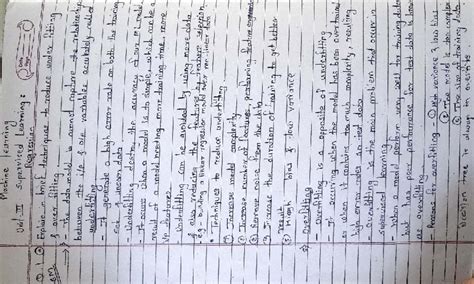 Machine Learning
Unit II Supervised Learning :
Regression
Q. Explain in brief techniques to reduce under fitting
& over fitting.
→ - The data model is cannot capture the relationship
between the i/p & o/p variables accurately called
underfitting
- It generate a high error rate on both the training
and unseen data
- Underfitting destroy the accuracy of our ML model
- It occurs when a model is to simple, which can be a
result of a model needing more training time, more
i/p features
- Underfitting can be avoided by using more data
& also reducing the features by feature selection
e.g - building a linear regression model over non-linear data
• Techniques to reduce underfitting
① Increase model complexity
② Increase number of features, performing feature
③ Remove noise from the data
④ Increase the duration of training to get better
result
⑤ High bias & low variance
Overfitting
- Overfitting is a opposite of underfitting
- It occurring when the model has been overtrained
or when it contains too much complexity, resulting
high error rates on test data
- Overfitting is the main problem that occur in
supervised learning
- When a model perform very well for training data
but has poor performance for test data is known
as overfitting
- Reasons for overfitting ① High variance & low bias
② The model is too complex
③ The size of training data